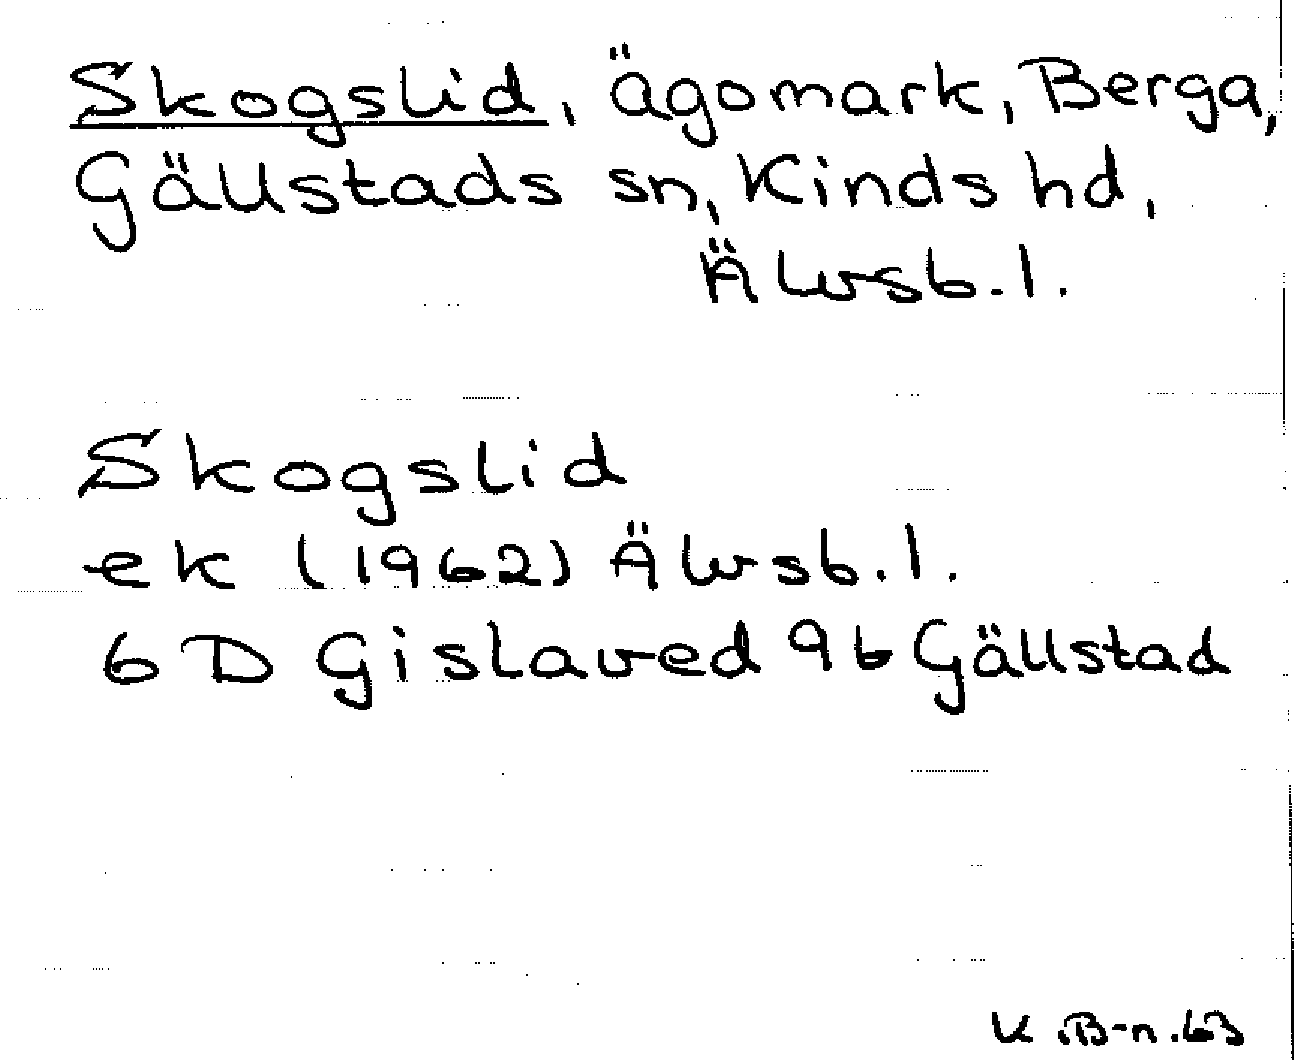 Skogslid, Ägomark, Berga,
Gällstads sn, Kinds hd,
Älvsb. l.
Skogslid
ek (1962) Älvsb. l.
6 D Gislaved 9 b Gällstad
K.B-n. 63